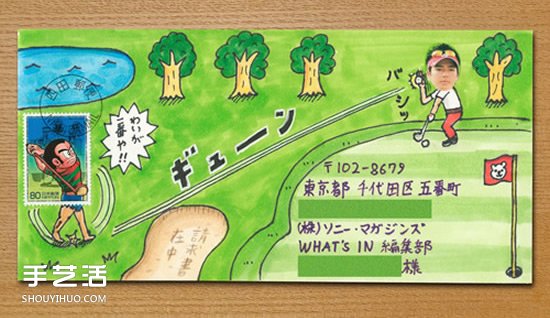 わいが
一番や!!
80
ギューン
バシッ
〒102-8679
東京都 千代田区 五番町
(株)ソニー・マガジンズ
WHAT's IN 編集部
様
請求書
在中
手艺活
SHOUYIHUO.COM